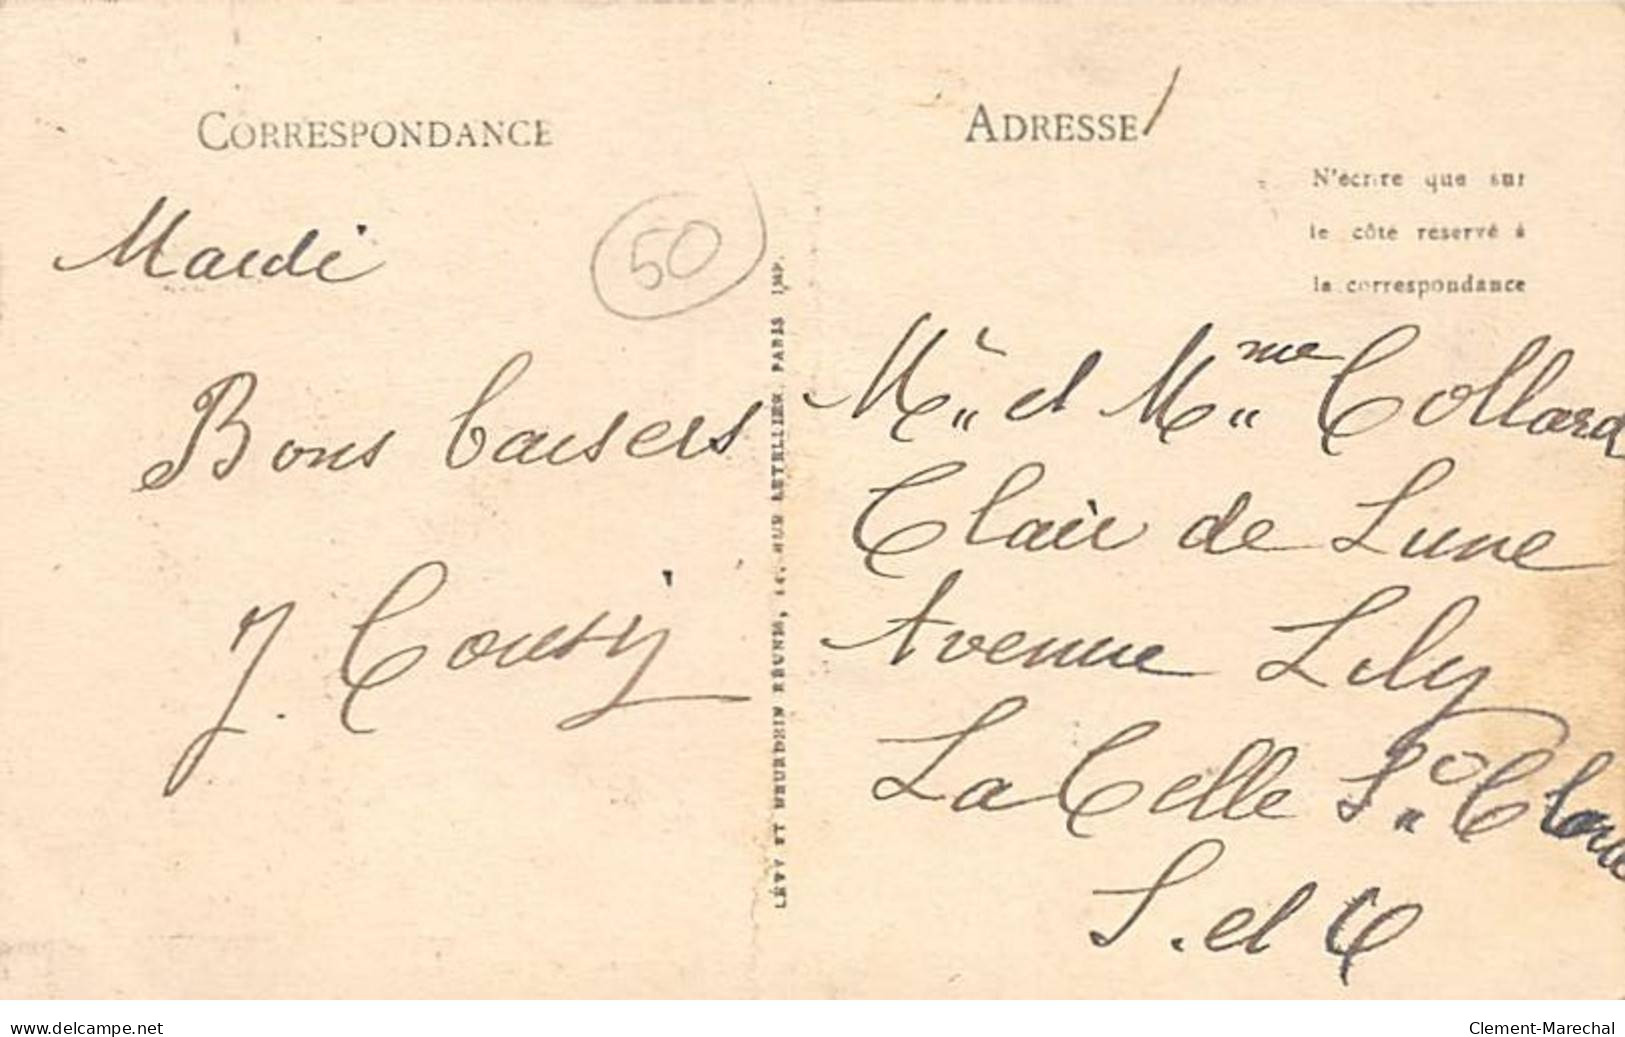 CORRESPONDANCE
Mardi
50
Bons baisers
J. Cousy
LÉVY ET NEURDEIN RÉUNIS, 44, RUE LETELLIER, PARIS IMP.
ADRESSE
N'écrire que sur
le côté réservé à
la correspondance
Mr et Mme Collard
Clair de Lune
Avenue Lily
La Celle St Cloud
S. et O
www.delcampe.net
Clement-Marechal